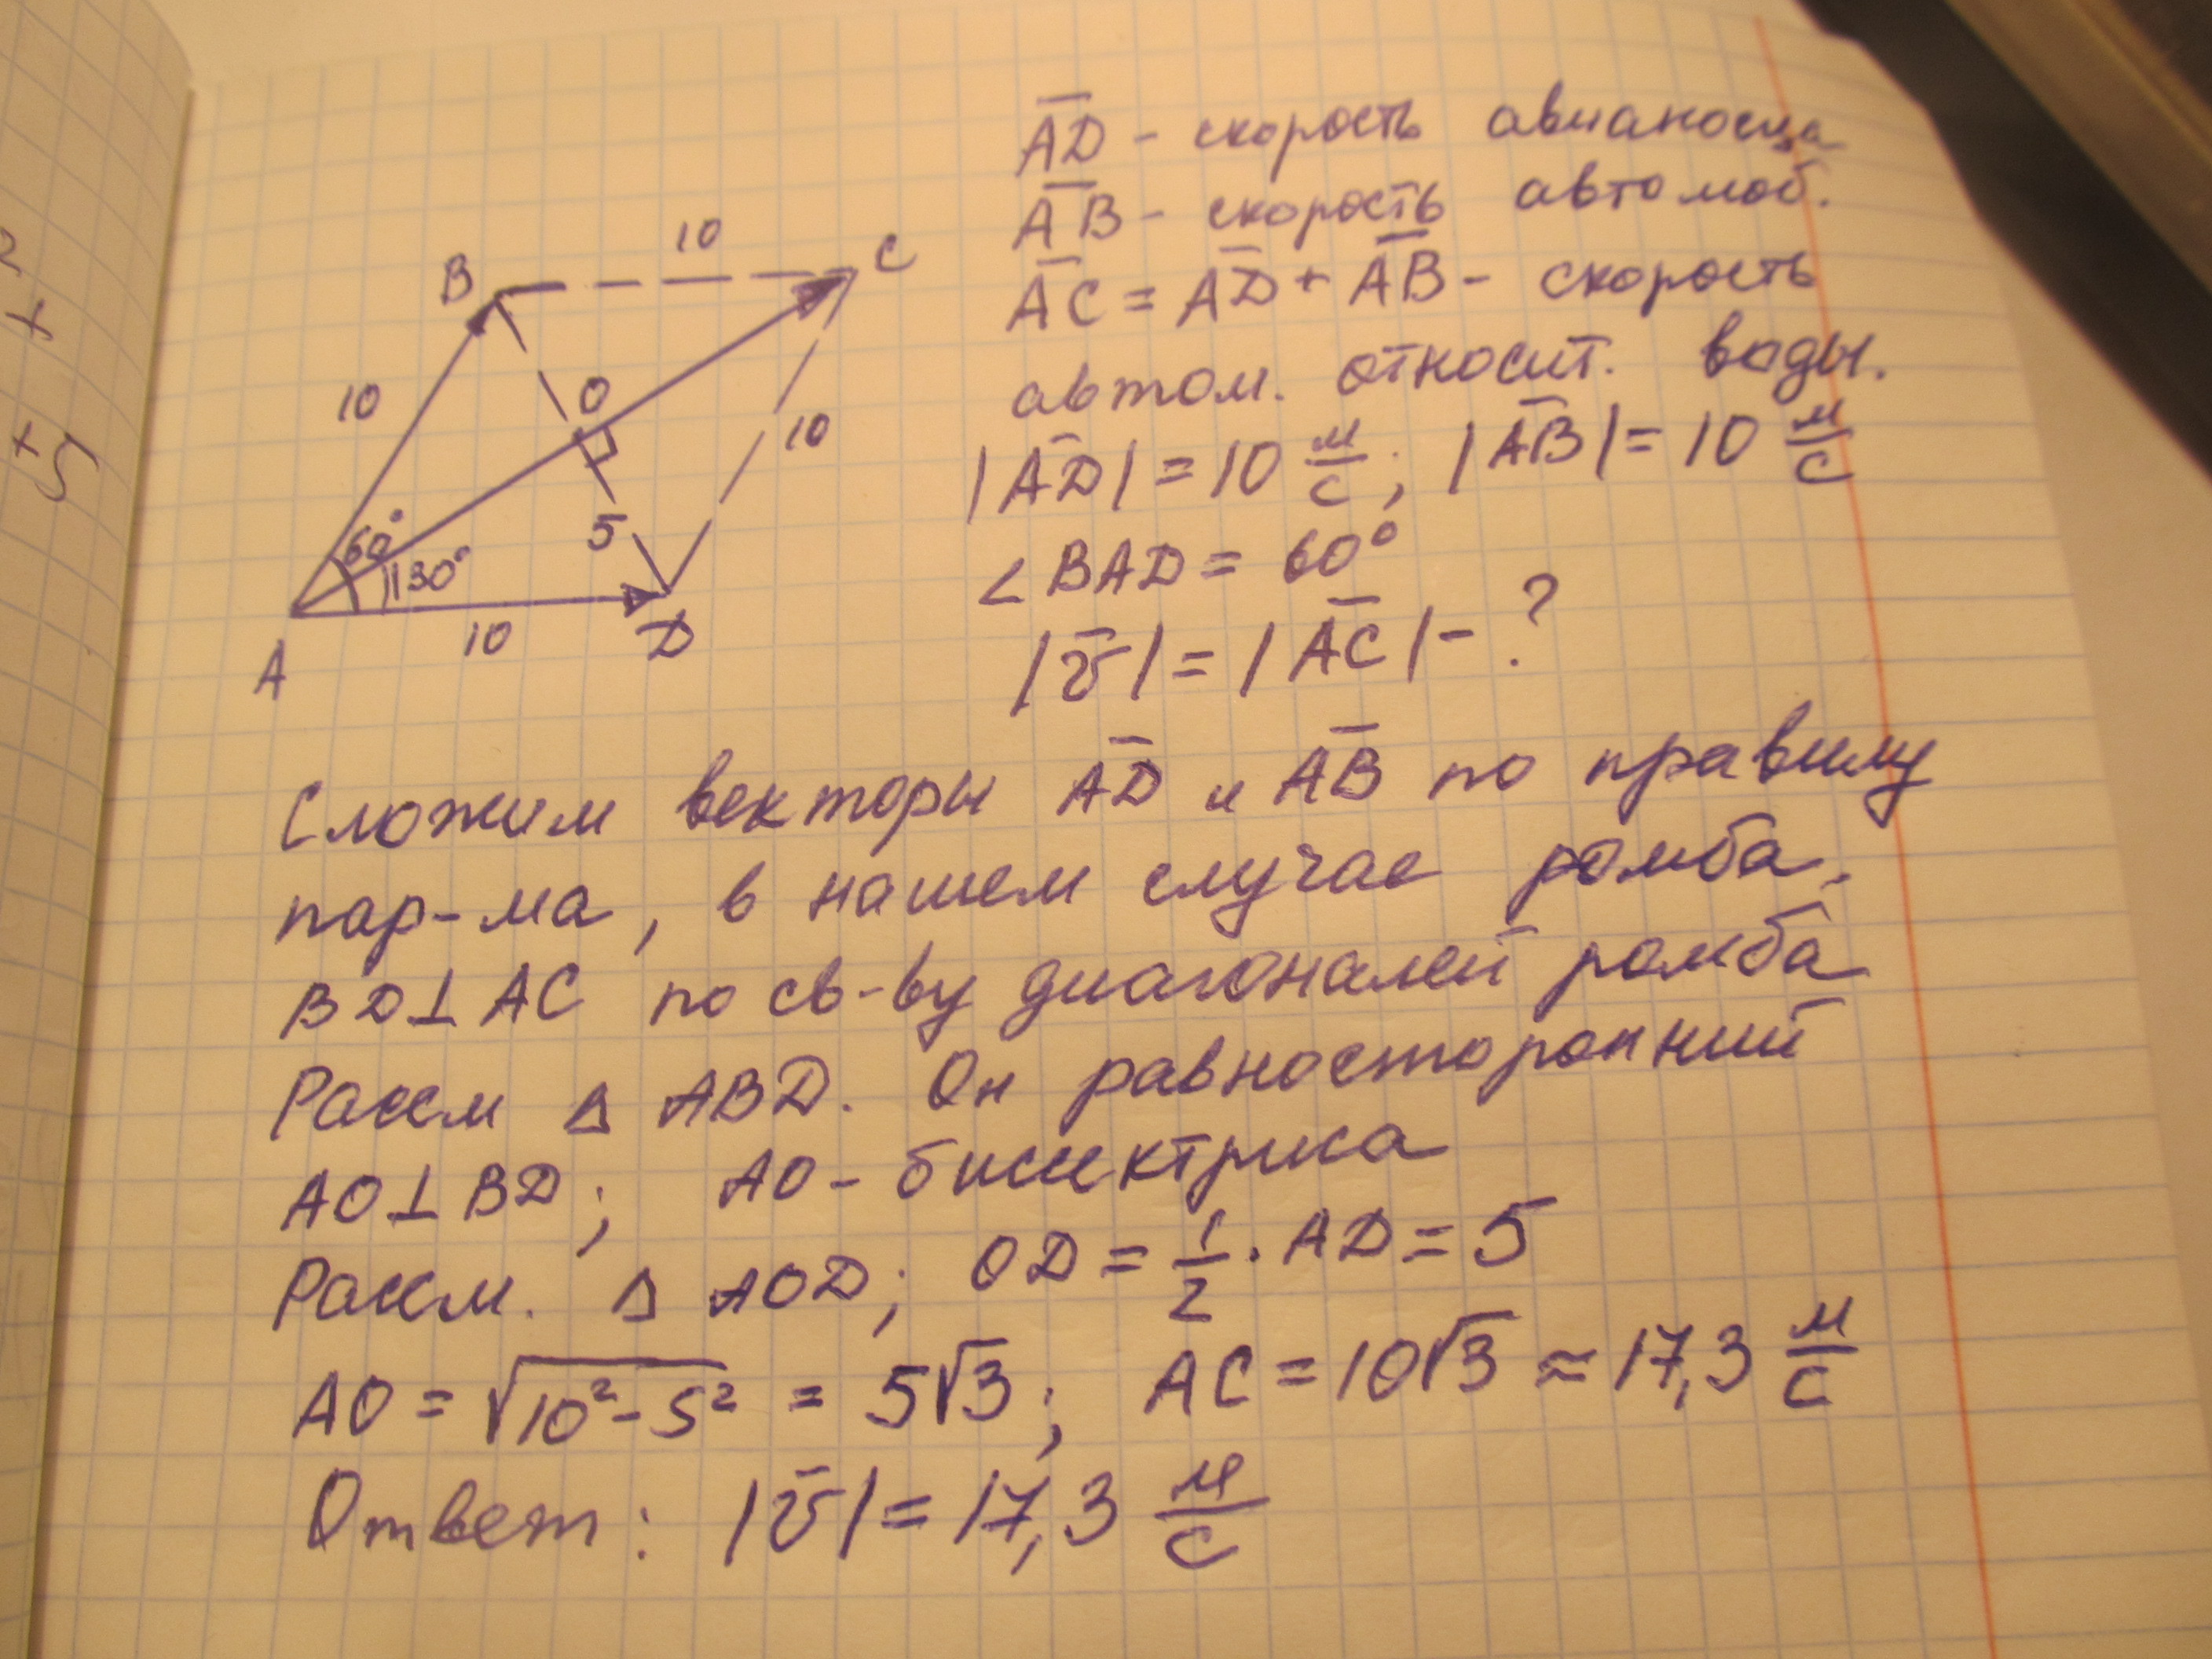 2
+
+5
B
10
C
10
O
10
60°
30°
5
A
10
D
AD - скорость авианосца
AB - скорость автомоб.
AC = AD + AB - скорость
автом. относит. воды.
|AD| = 10 м/с; |AB| = 10 м/с
∠BAD = 60°
|v| = |AC| - ?
Сложим векторы AD и AB по правилу
пар-ма, в нашем случае ромба.
BD⊥AC по св-ву диагоналей ромба
Рассм △ ABD. Он равносторонний
AO⊥BD; AO - биссектриса
Рассм. △ AOD; OD = 1/2 · AD = 5
AO = √10² - 5² = 5√3; AC = 10√3 ≈ 17,3 м/с
Ответ: |v| = 17,3 м/с